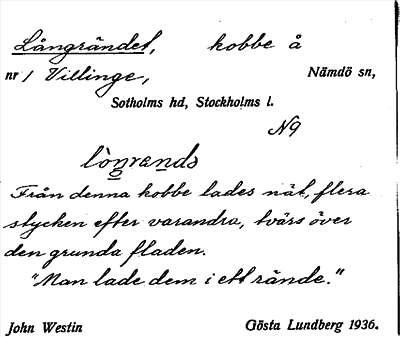 Långrändet, kobbe å
nr 1 Villinge, Nämdö sn,
Sotholms hd, Stockholms l.
N9
lòŋrends
Från denna kobbe lades nät, flera
stycken efter varandra, tvärs över
den grunda fladen.
"Man lade dem i ett rände."
John Westin Gösta Lundberg 1936.